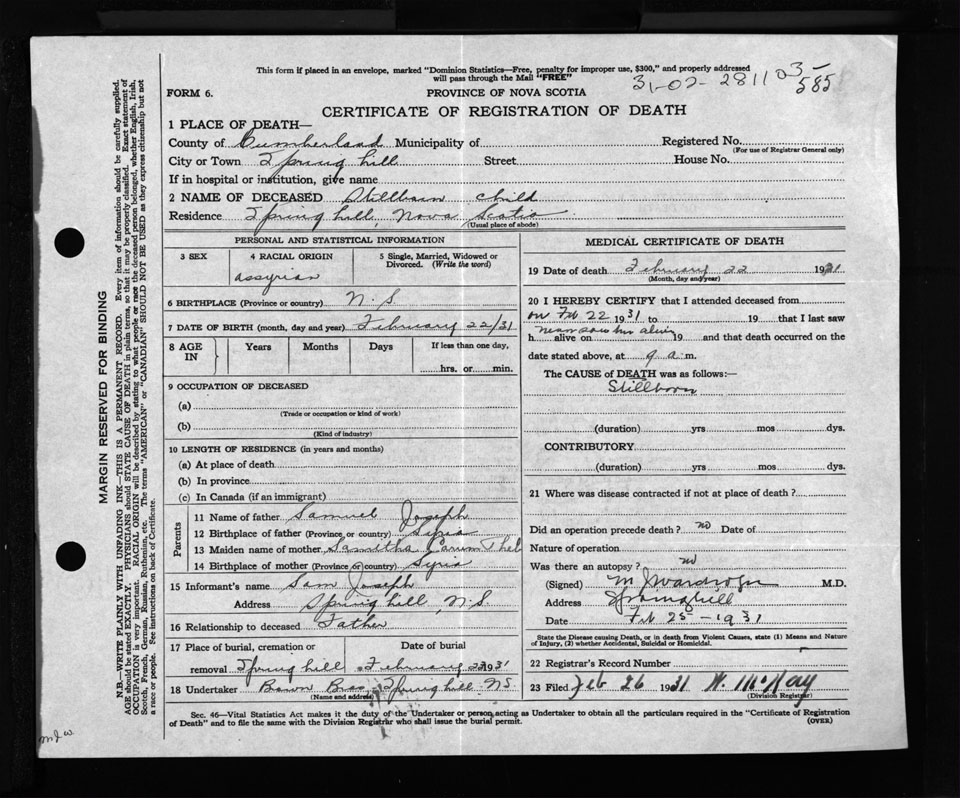 This form if placed in an envelope, marked "Dominion Statistics—Free, penalty for improper use, $300," and properly addressed
will pass through the Mail "FREE"
31-02-281103-
585
FORM 6.
PROVINCE OF NOVA SCOTIA
CERTIFICATE OF REGISTRATION OF DEATH
1 PLACE OF DEATH—
County of Cumberland Municipality of
Registered No.
(For use of Registrar General only)
City or Town Spring hill Street House No.
If in hospital or institution, give name
2 NAME OF DECEASED Stillborn child
Residence Spring hill, Nova Scotia
(Usual place of abode)
PERSONAL AND STATISTICAL INFORMATION
3 SEX
4 RACIAL ORIGIN
assyrian
5 Single, Married, Widowed or
Divorced. (Write the word)
6 BIRTHPLACE (Province or country) N.S.
7 DATE OF BIRTH (month, day and year) February 22/31
8 AGE
IN
Years Months Days
If less than one day,
hrs. or min.
9 OCCUPATION OF DECEASED
(a)
(Trade or occupation or kind of work)
(b)
(Kind of industry)
10 LENGTH OF RESIDENCE (in years and months)
(a) At place of death
(b) In province
(c) In Canada (if an immigrant)
Parents
11 Name of father Samuel Joseph
12 Birthplace of father (Province or country) Syria
13 Maiden name of mother
14 Birthplace of mother (Province or country) Syria
15 Informant's name Sam Joseph
Address Spring hill, N.S.
16 Relationship to deceased Father
17 Place of burial, cremation or Date of burial
removal Spring hill February 23 1931
18 Undertaker Brown Bros Spring hill NS
(Name and address)
MEDICAL CERTIFICATE OF DEATH
19 Date of death February 22 1931
(Month, day and year)
20 I HEREBY CERTIFY that I attended deceased from
on Feb 22 1931 to 19 that I last saw
never saw him alive
h alive on 19 and that death occurred on the
date stated above, at 9 a.m.
The CAUSE of DEATH was as follows:—
Stillborn
(duration) yrs mos dys.
CONTRIBUTORY
(duration) yrs mos dys.
21 Where was disease contracted if not at place of death?
Did an operation precede death? no Date of
Nature of operation
Was there an autopsy? no
(Signed) M. J. Wardrope M.D.
Address Springhill
Date Feb 25-1931
State the Disease causing Death, or in death from Violent Causes, state (1) Means and Nature
of Injury, (2) whether Accidental, Suicidal or Homicidal.
22 Registrar's Record Number
23 Filed Feb 26 1931 W. McKay
(Division Registrar)
Sec. 46—Vital Statistics Act makes it the duty of the Undertaker or person acting as Undertaker to obtain all the particulars required in the "Certificate of Registration
of Death" and to file the same with the Division Registrar who shall issue the burial permit.
(OVER)
MARGIN RESERVED FOR BINDING
N.B.—WRITE PLAINLY WITH UNFADING INK—THIS IS A PERMANENT RECORD. Every item of information should be carefully supplied.
AGE should be stated EXACTLY. PHYSICIANS should STATE CAUSE OF DEATH in plain terms, so that it may be properly classified. Exact statement of
OCCUPATION is very important. RACIAL ORIGIN will be described by stating to what people or race the deceased person belonged, whether English, Irish,
Scotch, French, German, Russian, Ruthenian, etc. The terms "AMERICAN" or "CANADIAN" SHOULD NOT BE USED as they express citizenship but not
a race or people. See instructions on back of Certificate.
mjw